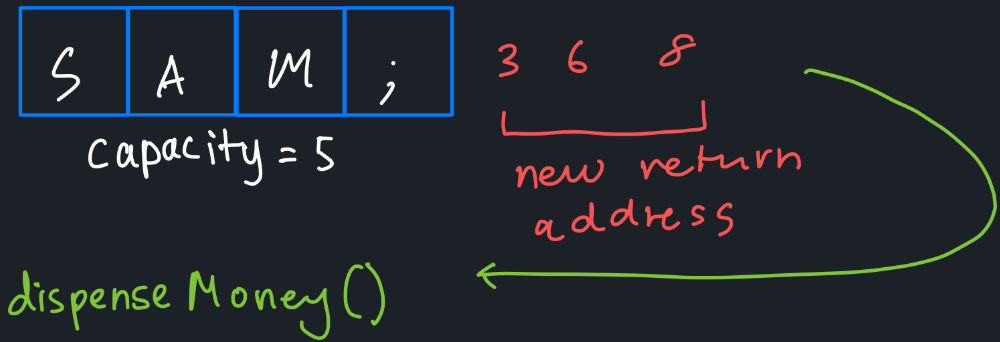 S A M ; 3 6 8
capacity = 5
new return
address
dispenseMoney()